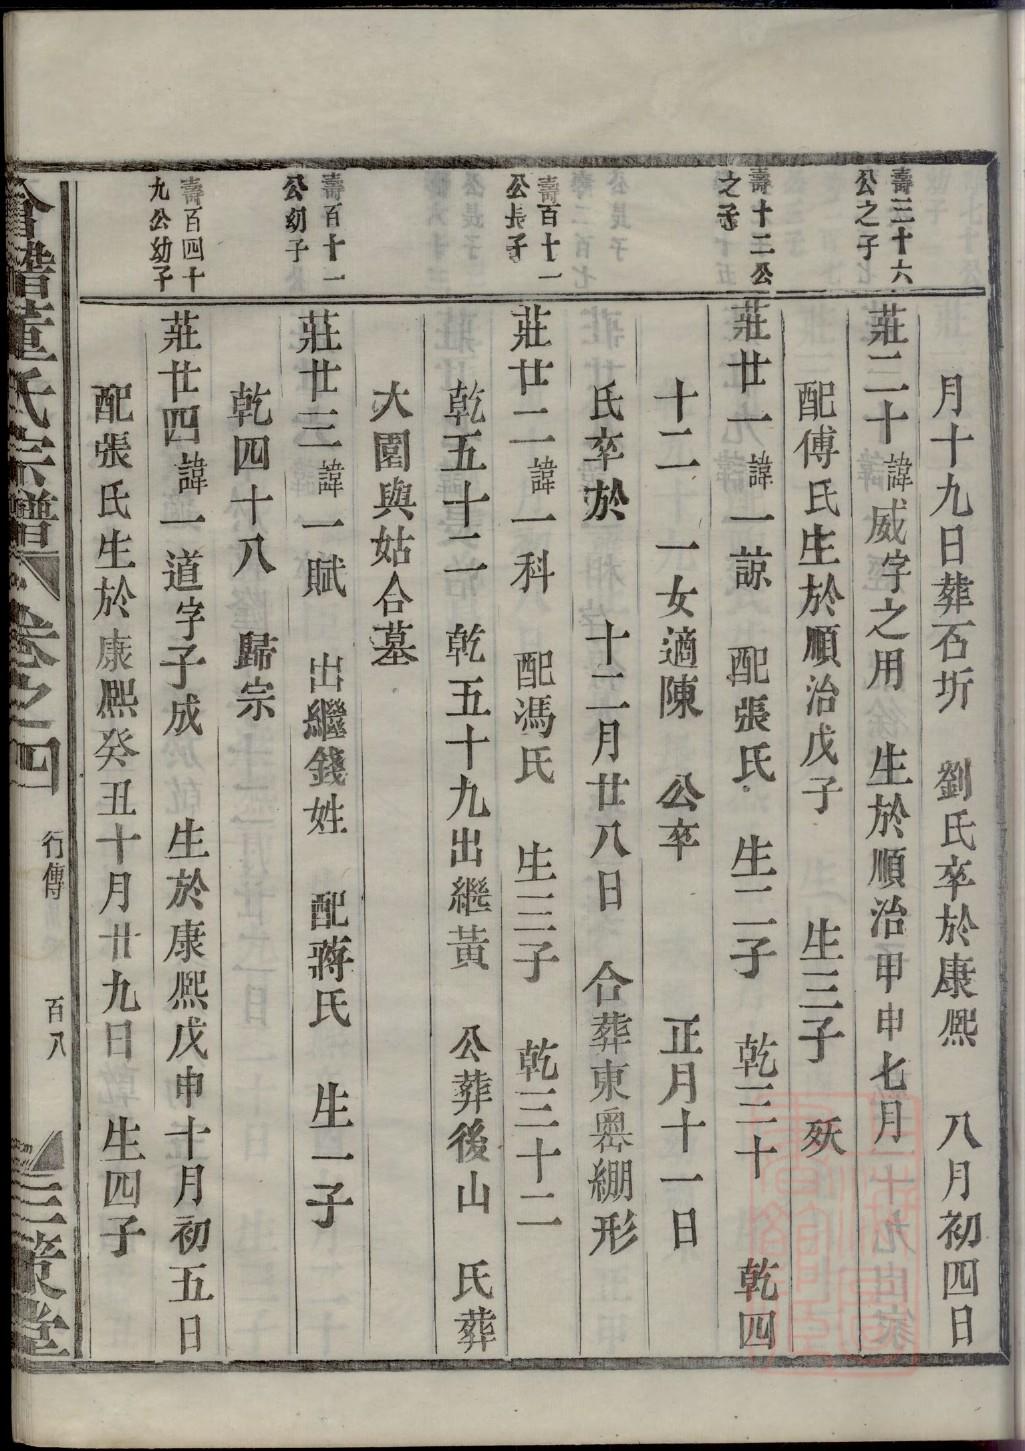 月十九日葬石圻 劉氏卒於康熙 八月初四日
壽三十六公之子
莊二十諱威字之用 生於順治甲申七月二十九
配傅氏生於順治戊子 生三子 殀
壽十二公之子
莊廿一諱一諒 配張氏 生二子 乾三十 乾四
十二 一女適陳 公卒 正月十一日
氏卒於 十二月廿八日 合葬東嶴綳形
壽百十一公長子
莊廿二諱一科 配馮氏 生三子 乾三十二
乾五十二 乾五十九出繼黃 公葬後山 氏葬
大園與姑合墓
壽百十一公幼子
莊廿三諱一賦 出繼錢姓 配蔣氏 生一子
乾四十八 歸宗
壽百四十九公幼子
莊廿四諱一道字子成 生於康熙戊申十月初五日
配張氏生於康熙癸丑十月廿九日 生四子
董氏宗譜 卷之四 行傳 百八 三策堂